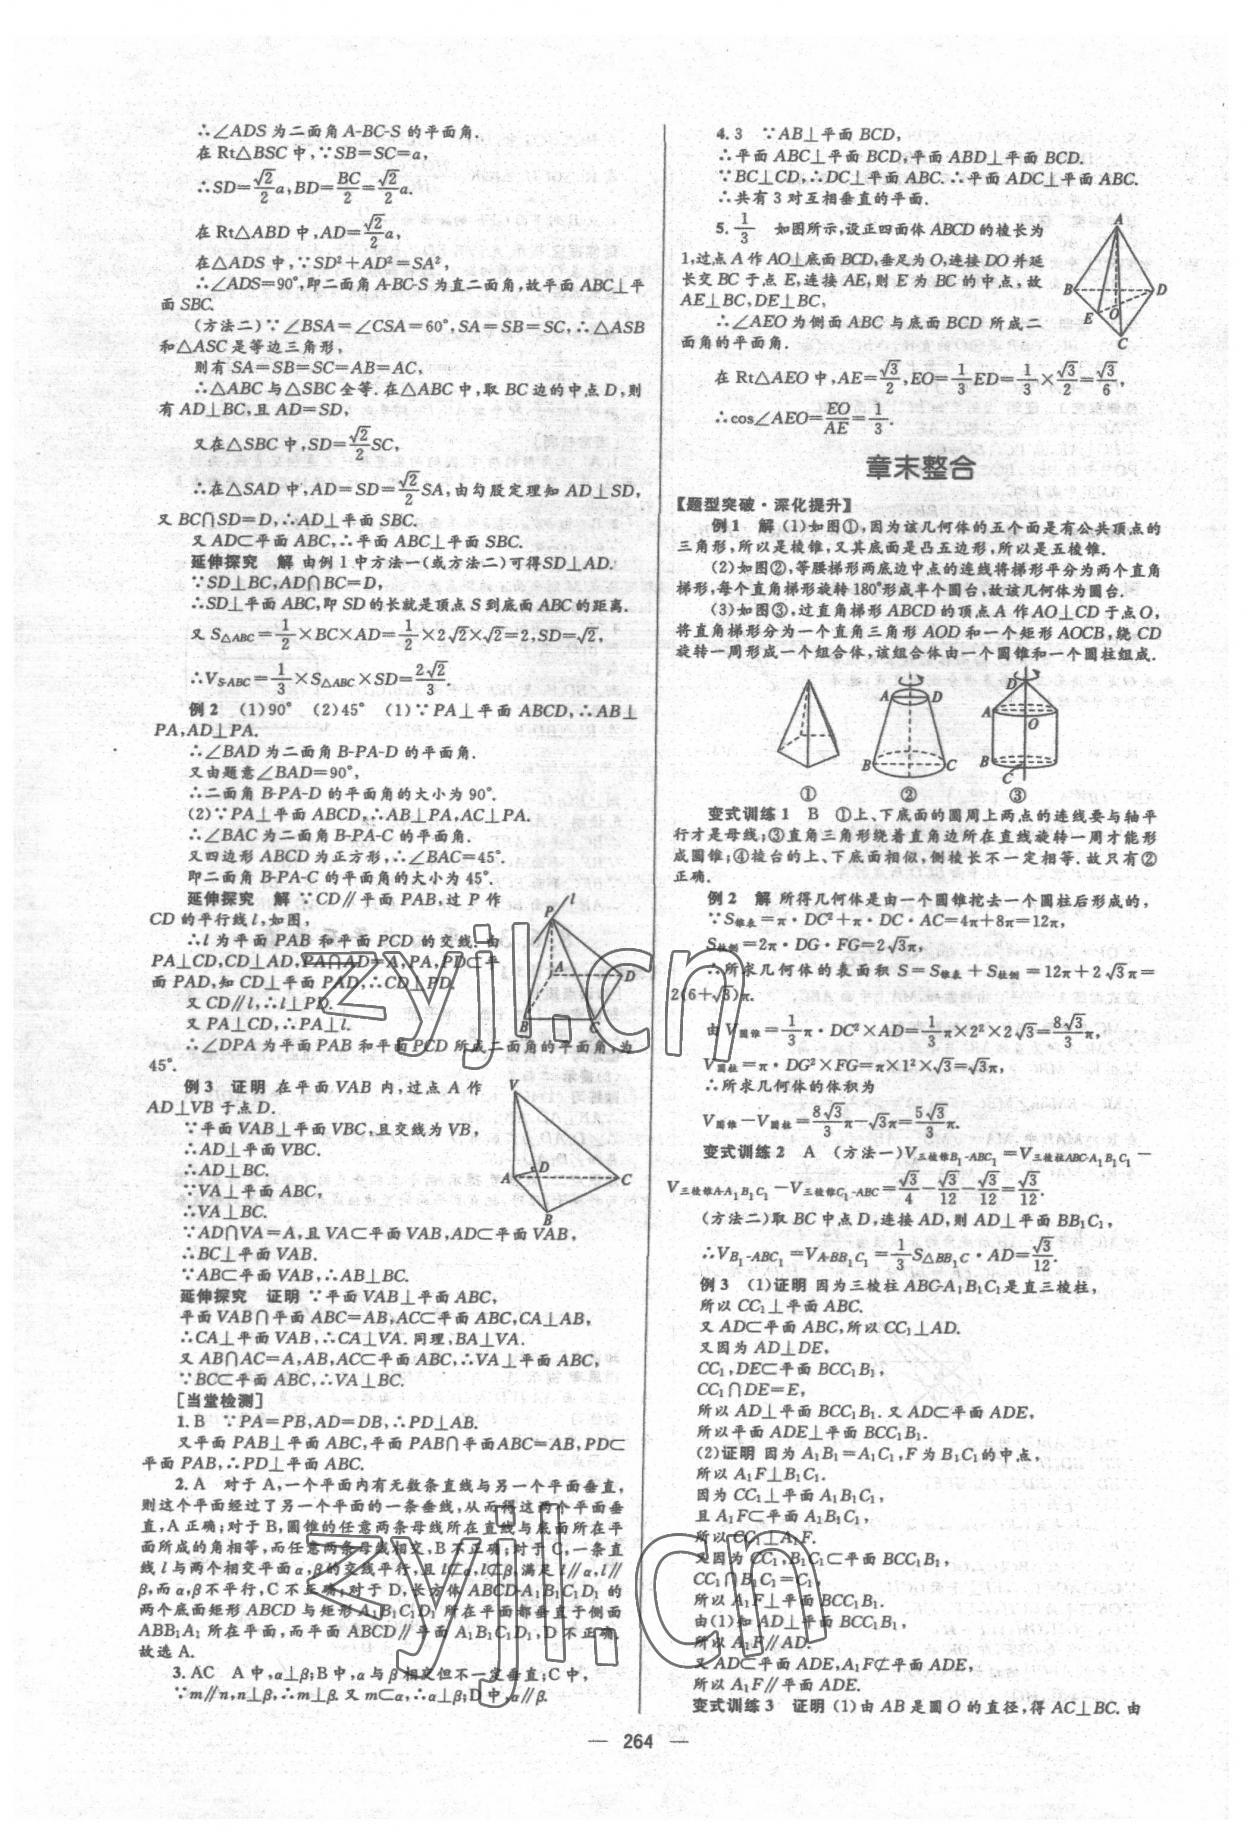 ∴∠ADS为二面角A-BC-S的平面角.
在Rt△BSC中,∵SB=SC=a,
∴SD=√2/2 a,BD=BC/2=√2/2 a.
在Rt△ABD中,AD=√2/2 a,
在△ADS中,∵SD²+AD²=SA²,
∴∠ADS=90°,即二面角A-BC-S为直二面角,故平面ABC⊥平
面SBC.
(方法二)∵∠BSA=∠CSA=60°,SA=SB=SC,∴△ASB
和△ASC是等边三角形,
则有SA=SB=SC=AB=AC,
∴△ABC与△SBC全等.在△ABC中,取BC边的中点D,则
有AD⊥BC,且AD=SD,
又在△SBC中,SD=√2/2 SC,
∴在△SAD中,AD=SD=√2/2 SA,由勾股定理知AD⊥SD,
又BC∩SD=D,∴AD⊥平面SBC.
又AD⊂平面ABC,∴平面ABC⊥平面SBC.
延伸探究 解 由例1中方法一(或方法二)可得SD⊥AD.
∵SD⊥BC,AD∩BC=D,
∴SD⊥平面ABC,即SD的长就是顶点S到底面ABC的距离.
又S△ABC=1/2×BC×AD=1/2×2√2×√2=2,SD=√2,
∴VS-ABC=1/3×S△ABC×SD=2√2/3.
例2 (1)90° (2)45° (1)∵PA⊥平面ABCD,∴AB⊥
PA,AD⊥PA.
∴∠BAD为二面角B-PA-D的平面角.
又由题意∠BAD=90°,
∴二面角B-PA-D的平面角的大小为90°.
(2)∵PA⊥平面ABCD,∴AB⊥PA,AC⊥PA.
∴∠BAC为二面角B-PA-C的平面角.
又四边形ABCD为正方形,∴∠BAC=45°.
即二面角B-PA-C的平面角的大小为45°.
延伸探究 解 ∵CD∥平面PAB,过P作
CD的平行线l,如图,
∴l为平面PAB和平面PCD的交线.由
PA⊥CD,CD⊥AD,PA∩AD=A,PA,PD⊂平
面PAD,知CD⊥平面PAD,∴CD⊥PD.
又CD∥l,∴l⊥PD.
又PA⊥CD,∴PA⊥l.
∴∠DPA为平面PAB和平面PCD所成二面角的平面角,为
45°.
P l A D B C
例3 证明 在平面VAB内,过点A作
AD⊥VB于点D.
∵平面VAB⊥平面VBC,且交线为VB,
∴AD⊥平面VBC.
∴AD⊥BC.
∵VA⊥平面ABC,
∴VA⊥BC.
∵AD∩VA=A,且VA⊂平面VAB,AD⊂平面VAB,
∴BC⊥平面VAB.
∵AB⊂平面VAB,∴AB⊥BC.
V D A C B
延伸探究 证明 ∵平面VAB⊥平面ABC,
平面VAB∩平面ABC=AB,AC⊂平面ABC,CA⊥AB,
∴CA⊥平面VAB,∴CA⊥VA.同理,BA⊥VA.
又AB∩AC=A,AB,AC⊂平面ABC,∴VA⊥平面ABC,
∵BC⊂平面ABC,∴VA⊥BC.
[当堂检测]
1.B ∵PA=PB,AD=DB,∴PD⊥AB.
又平面PAB⊥平面ABC,平面PAB∩平面ABC=AB,PD⊂
平面PAB,∴PD⊥平面ABC.
2.A 对于A,一个平面内有无数条直线与另一个平面垂直,
则这个平面经过了另一个平面的一条垂线,从而得这两个平面垂
直,A正确;对于B,圆锥的任意两条母线所在直线与底面所在平
面所成的角相等,而任意两条母线相交,B不正确;对于C,一条直
线l与两个相交平面α,β的交线平行,且l⊄α,l⊄β,满足l∥α,l∥
β,而α,β不平行,C不正确;对于D,长方体ABCD-A₁B₁C₁D₁的
两个底面矩形ABCD与矩形A₁B₁C₁D₁所在平面都垂直于侧面
ABB₁A₁所在平面,而平面ABCD∥平面A₁B₁C₁D₁,D不正确.
故选A.
3.AC A中,α⊥β;B中,α与β相交但不一定垂直;C中,
∵m∥n,n⊥β,∴m⊥β.又m⊂α,∴α⊥β;D中,α∥β.
4.3 ∵AB⊥平面BCD,
∴平面ABC⊥平面BCD,平面ABD⊥平面BCD.
∵BC⊥CD,∴DC⊥平面ABC.∴平面ADC⊥平面ABC.
∴共有3对互相垂直的平面.
5.1/3 如图所示,设正四面体ABCD的棱长为
1,过点A作AO⊥底面BCD,垂足为O,连接DO并延
长交BC于点E,连接AE,则E为BC的中点,故
AE⊥BC,DE⊥BC,
∴∠AEO为侧面ABC与底面BCD所成二
面角的平面角.
A B D E O C
在Rt△AEO中,AE=√3/2,EO=1/3 ED=1/3×√3/2=√3/6,
∴cos∠AEO=EO/AE=1/3.
章末整合
【题型突破·深化提升】
例1 解 (1)如图①,因为该几何体的五个面是有公共顶点的
三角形,所以是棱锥,又其底面是凸五边形,所以是五棱锥.
(2)如图②,等腰梯形两底边中点的连线将梯形平分为两个直角
梯形,每个直角梯形旋转180°形成半个圆台,故该几何体为圆台.
(3)如图③,过直角梯形ABCD的顶点A作AO⊥CD于点O,
将直角梯形分为一个直角三角形AOD和一个矩形AOCB,绕CD
旋转一周形成一个组合体,该组合体由一个圆锥和一个圆柱组成.
A D B C D A O B C
① ② ③
变式训练1 B ①上、下底面的圆周上两点的连线要与轴平
行才是母线;③直角三角形绕着直角边所在直线旋转一周才能形
成圆锥;④棱台的上、下底面相似,侧棱长不一定相等.故只有②
正确.
例2 解 所得几何体是由一个圆锥挖去一个圆柱后形成的,
∵S锥表=π·DC²+π·DC·AC=4π+8π=12π,
S柱侧=2π·DG·FG=2√3π,
∴所求几何体的表面积S=S锥表+S柱侧=12π+2√3π=
2(6+√3)π.
由V圆锥=1/3 π·DC²×AD=1/3 π×2²×2√3=8√3/3 π,
V圆柱=π·DG²×FG=π×1²×√3=√3π,
∴所求几何体的体积为
V圆锥-V圆柱=8√3/3 π-√3π=5√3/3 π.
变式训练2 A (方法一)V三棱锥B₁-ABC₁=V三棱柱ABC-A₁B₁C₁-
V三棱锥A-A₁B₁C₁-V三棱锥C₁-ABC=√3/4-√3/12-√3/12=√3/12.
(方法二)取BC中点D,连接AD,则AD⊥平面BB₁C₁,
∴VB₁-ABC₁=VA-BB₁C₁=1/3 S△BB₁C·AD=√3/12.
例3 (1)证明 因为三棱柱ABC-A₁B₁C₁是直三棱柱,
所以CC₁⊥平面ABC.
又AD⊂平面ABC,所以CC₁⊥AD.
又因为AD⊥DE,
CC₁,DE⊂平面BCC₁B₁,
CC₁∩DE=E,
所以AD⊥平面BCC₁B₁.又AD⊂平面ADE,
所以平面ADE⊥平面BCC₁B₁.
(2)证明 因为A₁B₁=A₁C₁,F为B₁C₁的中点,
所以A₁F⊥B₁C₁.
因为CC₁⊥平面A₁B₁C₁,
且A₁F⊂平面A₁B₁C₁,
所以CC₁⊥A₁F.
又因为CC₁,B₁C₁⊂平面BCC₁B₁,
CC₁∩B₁C₁=C₁,
所以A₁F⊥平面BCC₁B₁.
由(1)知AD⊥平面BCC₁B₁,
所以A₁F∥AD.
又AD⊂平面ADE,A₁F⊄平面ADE,
所以A₁F∥平面ADE.
变式训练3 证明 (1)由AB是圆O的直径,得AC⊥BC.由
— 264 —
zyjl.cn
zyjl.cn